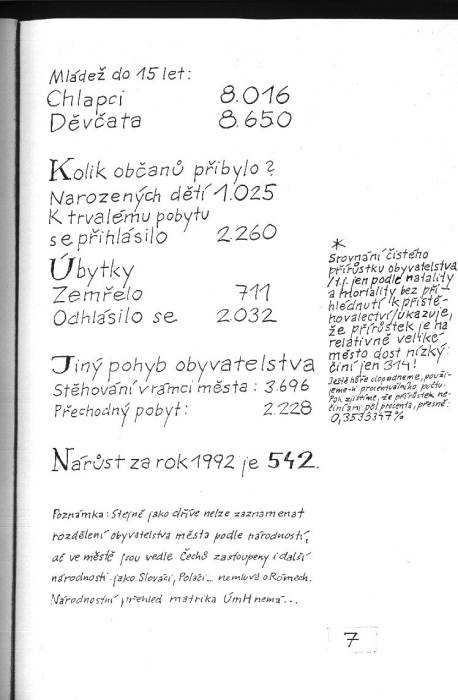 Mládež do 15 let:
Chlapci 8.016
Děvčata 8.650
Kolik občanů přibylo?
Narozených dětí 1.025
K trvalému pobytu
se přihlásilo 2.260
Úbytky
Zemřelo 711
Odhlásilo se 2.032
Jiný pohyb obyvatelstva
Stěhování v rámci města: 3.696
Přechodný pobyt: 2.228
Nárůst za rok 1992 je 542.
*
Srovnání čistého
přírůstku obyvatelstva
/t.j. jen podle natality
a mortality bez při-
hlédnutí k přistě-
hovalectví/ukazuje,
že přírůstek je na
relativně veliké
město dost nízký:
činí jen 314!
Ještě hůře dopadneme, použi-
jeme-li procentuálního počtu.
Pak zjistíme, že přírůstek ne-
činí ani půl procenta, přesně:
0,3533347%
Poznámka: Stejně jako dříve nelze zaznamenat
rozdělení obyvatelstva města podle národností,
ač ve městě jsou vedle Čechů zastoupeny i další
národnosti jako Slováci, Poláci... nemluvě o Rómech.
Národnostní přehled matrika ÚmH nemá...
7